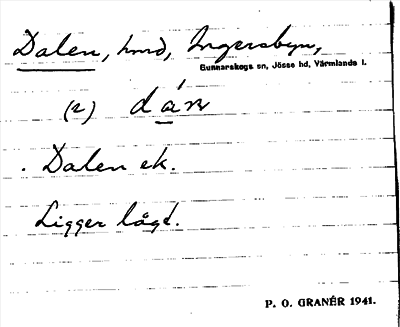 Dalen, hmd, Ingersbyn,
Gunnarskogs sn, Jösse hd, Värmlands l.
(2) dán
. Dalen ek.
Ligger lågt.
P. O. GRANÉR 1941.